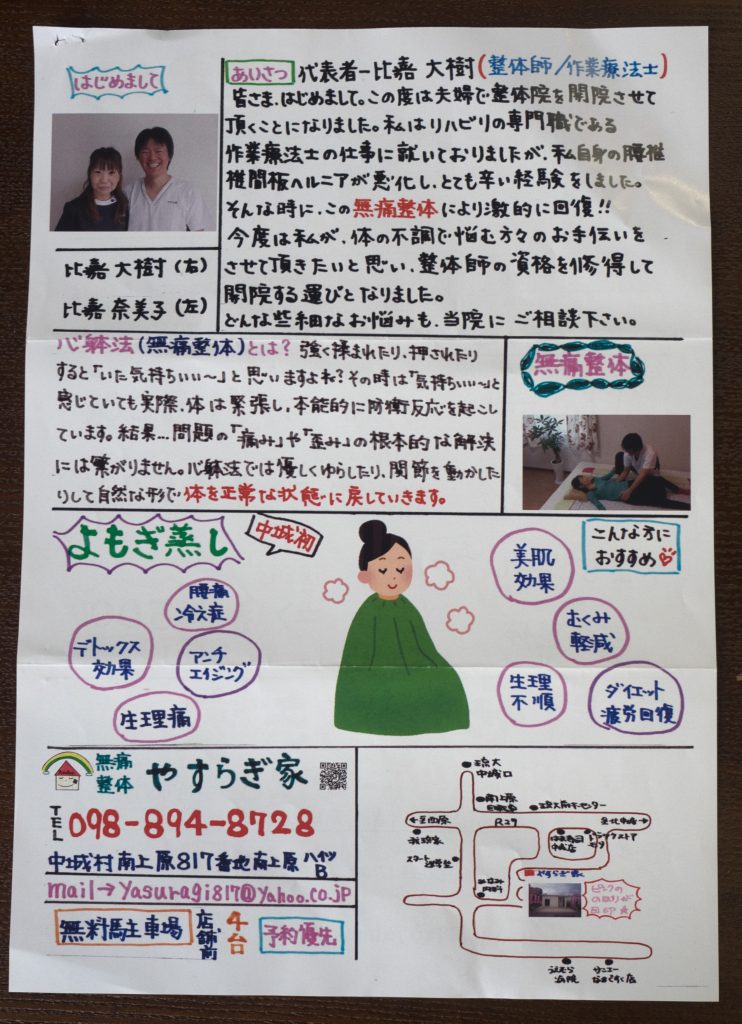 はじめまして
比嘉 大樹(右)
比嘉 奈美子(左)
あいさつ 代表者-比嘉 大樹(整体師/作業療法士)
皆さま、はじめまして。この度は夫婦で整体院を開院させて
頂くことになりました。私はリハビリの専門職である
作業療法士の仕事に就いておりましたが、私自身の腰椎
椎間板ヘルニアが悪化し、とても辛い経験をしました。
そんな時に、この無痛整体により激的に回復!!
今度は私が、体の不調で悩む方々のお手伝いを
させて頂きたいと思い、整体師の資格を修得して
開院する運びとなりました。
どんな些細なお悩みも、当院にご相談下さい。
心躰法(無痛整体)とは? 強く揉まれたり、押されたり
すると「いた気持ちいい〜」と思いますよね?その時は「気持ちいい〜」と
感じていても実際、体は緊張し、本能的に防衛反応を起こし
ています。結果…問題の「痛み」や「歪み」の根本的な解決
には繋がりません。心躰法では優しくゆらしたり、関節を動かした
りして自然な形で体を正常な状態に戻していきます。
無痛整体
よもぎ蒸し
中城初
こんな方に
おすすめ
腰痛
冷え症
デトックス
効果
アンチ
エイジング
生理痛
美肌
効果
むくみ
軽減
生理
不順
ダイエット
疲労回復
無痛
整体
やすらぎ家
TEL
098-894-8728
中城村南上原817番地南上原ハイツ
B
mail→yasuragi817@yahoo.co.jp
無料駐車場
店舗前
4台
予約優先
琉大
中城口
南上原
←至西原
R29
至北中城→
やすらぎ家
ピンクの
のぼりが
目印★
サンエー